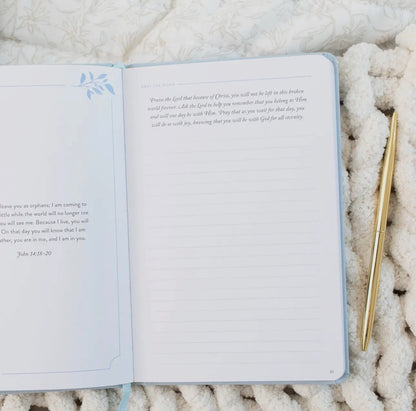 leave you as orphans; I am coming to
little while the world will no longer see
you will see me. Because I live, you will
On that day you will know that I am
ather, you are in me, and I am in you.
John 14:18–20
PRAY THE WORD
Praise the Lord that because of Christ, you will not be left in this broken
world forever. Ask the Lord to help you remember that you belong to Him
and will one day be with Him. Pray that as you wait for that day, you
will do so with joy, knowing that you will be with God for all eternity.